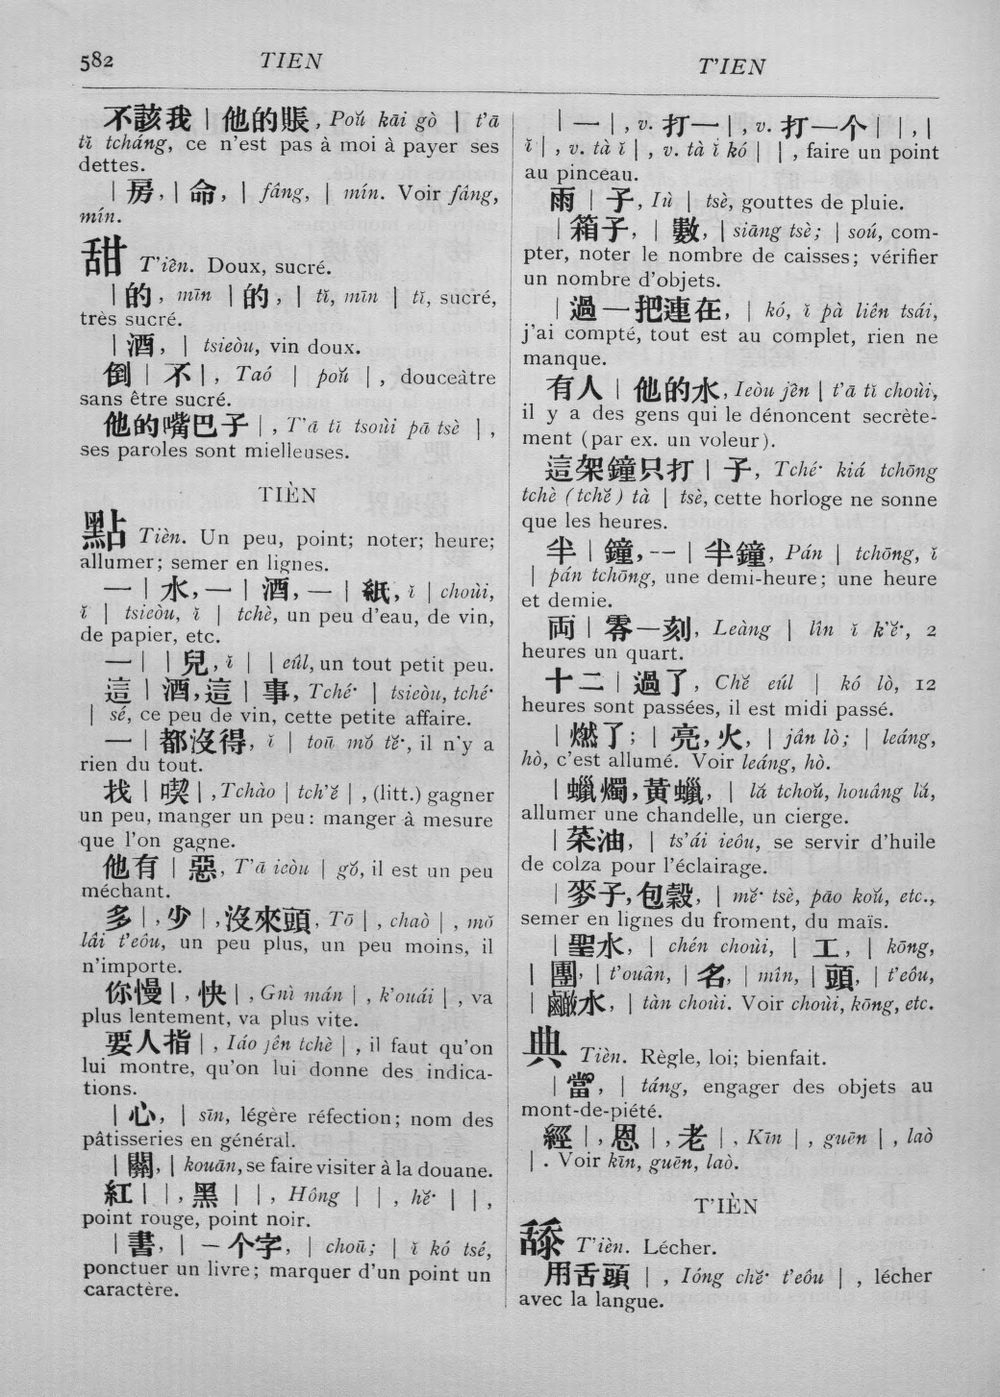 582
TIEN
T'IEN
不該我 | 他的賬, Pоŭ kāi gò | t'ā
tǐ tcháng, ce n'est pas à moi à payer ses
dettes.
| 房, | 命, | fâng, | mín. Voir fâng,
mín.
甜 T'iên. Doux, sucré.
| 的, mīn | 的, | tǐ, mīn | tǐ, sucré,
très sucré.
| 酒, | tsieòu, vin doux.
倒 | 不 |, Taó | poŭ |, douceàtre
sans être sucré.
他的嘴巴子 |, T'ā tǐ tsoùi pā tsè |,
ses paroles sont mielleuses.
TIÈN
點 Tièn. Un peu, point; noter; heure;
allumer; semer en lignes.
一 | 水, 一 | 酒, 一 | 紙, ǐ | choùi,
ǐ | tsieòu, ǐ | tchè, un peu d'eau, de vin,
de papier, etc.
一 | | 兒, ǐ | | eûl, un tout petit peu.
這 | 酒, 這 | 事, Tché· | tsieòu, tché·
| sé, ce peu de vin, cette petite affaire.
一 | 都沒得, ǐ | toū mŏ tĕ·, il n'y a
rien du tout.
找 | 喫 |, Tchào | tch'ĕ |, (litt.) gagner
un peu, manger un peu: manger à mesure
que l'on gagne.
他有 | 惡, T'ā ieòu | gŏ, il est un peu
méchant.
多 |, 少 |, 沒來頭, Tō |, chaò |, mŏ
lâi t'eôu, un peu plus, un peu moins, il
n'importe.
你慢 |, 快 |, Gnì mán |, k'ouái |, va
plus lentement, va plus vite.
要人指 |, Iáo jên tchè |, il faut qu'on
lui montre, qu'on lui donne des indica-
tions.
| 心, | sīn, légère réfection; nom des
pâtisseries en général.
| 關, | kouān, se faire visiter à la douane.
紅 | |, 黑 | |, Hông | |, hĕ· | |,
point rouge, point noir.
| 書, | 一个字, | choū; | ǐ kó tsé,
ponctuer un livre; marquer d'un point un
caractère.
| 一 |, v. 打一 |, v. 打一个 | |, |
ǐ |, v. tà ǐ |, v. tà ǐ kó | |, faire un point
au pinceau.
雨 | 子, Iù | tsè, gouttes de pluie.
| 箱子, | 數, | siāng tsè; | soú, com-
pter, noter le nombre de caisses; vérifier
un nombre d'objets.
| 過一把連在, | kó, ǐ pà liên tsái,
j'ai compté, tout est au complet, rien ne
manque.
有人 | 他的水, Ieòu jên | t'ā tǐ choùi,
il y a des gens qui le dénoncent secrète-
ment (par ex. un voleur).
這架鐘只打 | 子, Tché· kiá tchōng
tchè (tchĕ) tà | tsè, cette horloge ne sonne
que les heures.
半 | 鐘, 一 | 半鐘, Pán | tchōng, ǐ
| pán tchōng, une demi-heure; une heure
et demie.
両 | 零一刻, Leàng | lîn ǐ k'ĕ·, 2
heures un quart.
十二 | 過了, Chĕ eúl | kó lò, 12
heures sont passées, il est midi passé.
| 燃了; | 亮, 火, | jân lò; | leáng,
hò, c'est allumé. Voir leáng, hò.
| 蠟燭, 黃蠟, | lă tchoŭ, houâng lă,
allumer une chandelle, un cierge.
| 菜油, | ts'ái ieôu, se servir d'huile
de colza pour l'éclairage.
| 麥子, 包穀, | mĕ· tsè, pāo koŭ, etc.,
semer en lignes du froment, du maïs.
| 聖水, | chén choùi, | 工, | kōng,
| 團, | t'ouân, | 名, | mîn, | 頭, | t'eôu,
| 鹻水, | tàn choùi. Voir choùi, kōng, etc.
典 Tièn. Règle, loi; bienfait.
| 當, | táng, engager des objets au
mont-de-piété.
經 |, 恩 |, 老 |, Kīn |, guēn |, laò
|. Voir kīn, guēn, laò.
T'IÈN
舔 T'ièn. Lécher.
用舌頭 |, Ióng chĕ· t'eôu |, lécher
avec la langue.